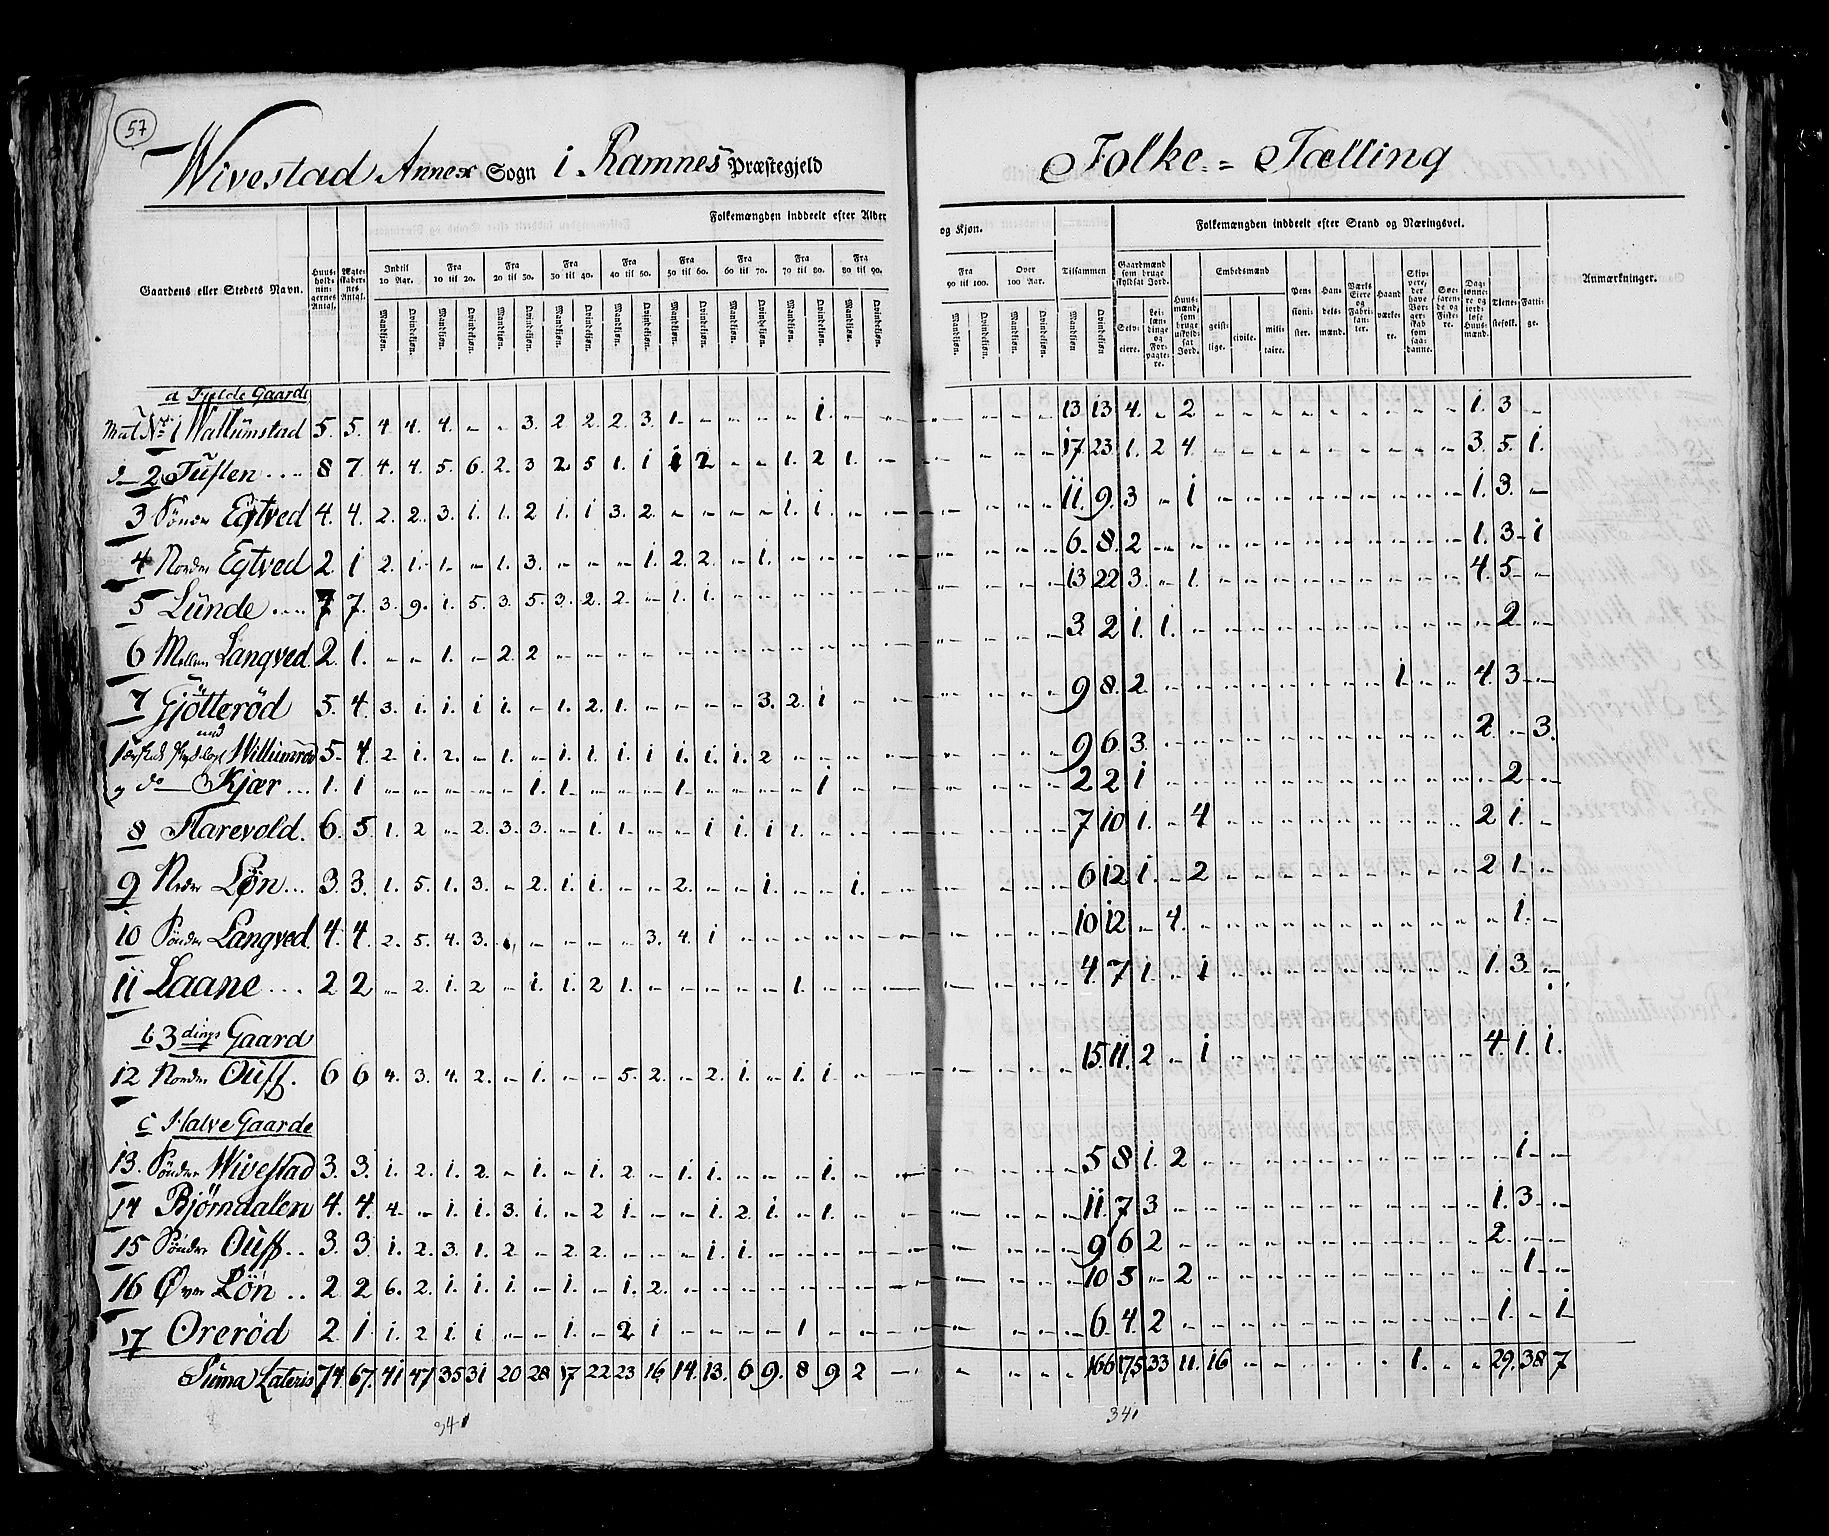 57
Wivestad Annex Sogn i Ramnes Præstegjeld
Folke = Tælling
Folkemængden inddeelt efter Alder og Kjøn.
Folkemængden inddeelt efter Stand og Næringsvei.
Gaardens eller Stedets Navn.
Huus-holdnin-gernes Antal.
Ægte-skaber-nes Antal.
Indtil 10 Aar.
Fra 10 til 20.
Fra 20 til 30.
Fra 30 til 40.
Fra 40 til 50.
Fra 50 til 60.
Fra 60 til 70.
Fra 70 til 80.
Fra 80 til 90.
Fra 90 til 100.
Over 100 Aar.
Tilsammen
Mandkiøn. Qvindekiøn.
Gaardmænd som bruge skyldsat Jord.
Selv-eiere.
Lei-læn-dinge og For-pagte-re.
Huus-mænd, som bruge uskyld-sat Jord.
Embedsmænd
geist-lige.
civile.
mili-taire.
Pen-sioni-ster.
Han-dels-mænd.
Værks Eiere og Fabri-kan-ter.
Haand værke-re.
Skip-pere, der have Bor-ger-skab som saa-danne.
Søe-farende og Fiske-re.
Dag-lønne-re og jord-løse Huus-mænd.
Tiene-stefolk.
Fatti-ge.
Anmærkninger.
a Fulde Gaarde
Mat No 1 Wallumstad 5. 5. 4. 4. 4. - - 3. 2 2. 2. 3. 1. - - - - 1. - - - - - - 13 13 4. - 2 - - - - - - - - - 1. 3 -
d 2 Tuften 8 7. 4. 4. 5. 6. 2. 3 2 5 1. 1 1 2 - - 1. 2 1. - - - - - 17 23 1. 2 4. - - - - - - - - - 3. 5. 1.
3 Sønder Egtved 4. 4. 2. 2. 3. 1. 1. 2 1. 1 3. 2. - - - - 1. 1. - - - - - - 11. 9. 3 - 1 - - - - - - - - - 1. 3. -
4 Norder Egtved 2 1 2. 1. 1. - 1. 3. - - - 1. 2. 2. - 1. - - - - - - - - 6. 8. 2 - - - - - - - - - - - 1. 3 1
5 Lunde 7 7. 3. 9. 1. 5. 3. 5. 3. 2. 2. - 1. 1. - - - - - - - - - - 13 22 3. - 1. - - - - - - - - - 4. 5 -
6 Mellem Langved 2. 1. - - 1. - 2 2 - - - - - - - - - - - - - - - - 3. 2 1. 1. - - - - - - - - - - - 2 -
7 Gjötterød 5. 4. 3. 1. 1. 1 1. - 1. 2. 1. - - - - 3. 2. 1 - - - - - - 9 8. 2. - - - - - - - - 1. - - 4. 3 -
Willumrød 5. 4. 2. 1. 2. - 1. - 1. 1. 1. 1 1. 1. 1. 2 - - - - - - - - 9 6 3. - - - - - - - - - - - 2. - 3.
do Kjær 1. 1 - - - - - 1. 1. - - - 1. - - - - 1 - - - - - - 2 2 1 - - - - - - - - - - - - 2 -
8 Harevold. 6. 5. 1. 2 - 2. 3. 3. - 1. 1. - - 1 1. 1 1. - - - - - - - 7 10 1. - 4 - - - - - - - - - 2 1. -
9 Neder Løn 3. 3. 1. 5. 1. 3. - 2. 1. 1. - - 2. - - 1. - - 1. - - - - - 6 12 1. - 2 - - - - - - - - - 2 1. -
10 Sønder Langved. 4. 4. 2. 5. 4. 3. - - - - - 3. 4. 1 - - - - - - - - - - 10 12 - 4. - - - - - - - - - - - 1. -
11 Laane 2 2 - 2. 1. 2 - 1. 1. 2 1. - - - - - 1. - - - - - - - 4. 7 1. - 1 - - - - - - - - - 1. 3. -
b. 3 dings Gaard
12 Norder Ouff. 6 6 4. 3. 4. 2. - 1. - - 5. 2. - 2. 1. - 1. 1. - - - - - - 15. 11. 2 - 1 - - - - - - - - - 4. 1. 1.
c Halve Gaarde
13. Sønder Wivestad 3. 3. 1. 2. 1. 2. - 1. - 1. 2 - 1. 1. - - - 1. - - - - - - 5 8 1. 2 - - - - - - - - - - - 1. -
14 Bjørndalen 4. 4. 4. - 1. 1. 3. 1. - 2 1. - - 1. 2. 1. - 1. - - - - - - 11. 7 3 - - - - - - - - - - - 1. 3. -
15 Sønder Ouff 3. 3. 1. 2. 3. 1. 2 - 2. 2. - - - 1. 1. - - - - - - - - - 9 6 2 - - - - - - - - - - - 2. - -
16 Øvre Løn 2 2 6. 2. 1. 1. 1. - 1. - 1. 2. - - - - - - - - - - - - 10 5 - 2 - - - - - - - - - - - 1. -
17 Orerød 2 1 1. 2 1. 1 - - 1. - 2 1 - - - - 1 - - - - - - - 6 4. 2 - - - - - - - - - - - 1. - 1
Suma Lateris 74. 67. 41 47 35 31 20 28 17 22 23 16 14. 13. 6 9. 8 9 2 - - - - - 166 175 33 11. 16 - - - - - - - 1. - - 29. 38 7
341
341